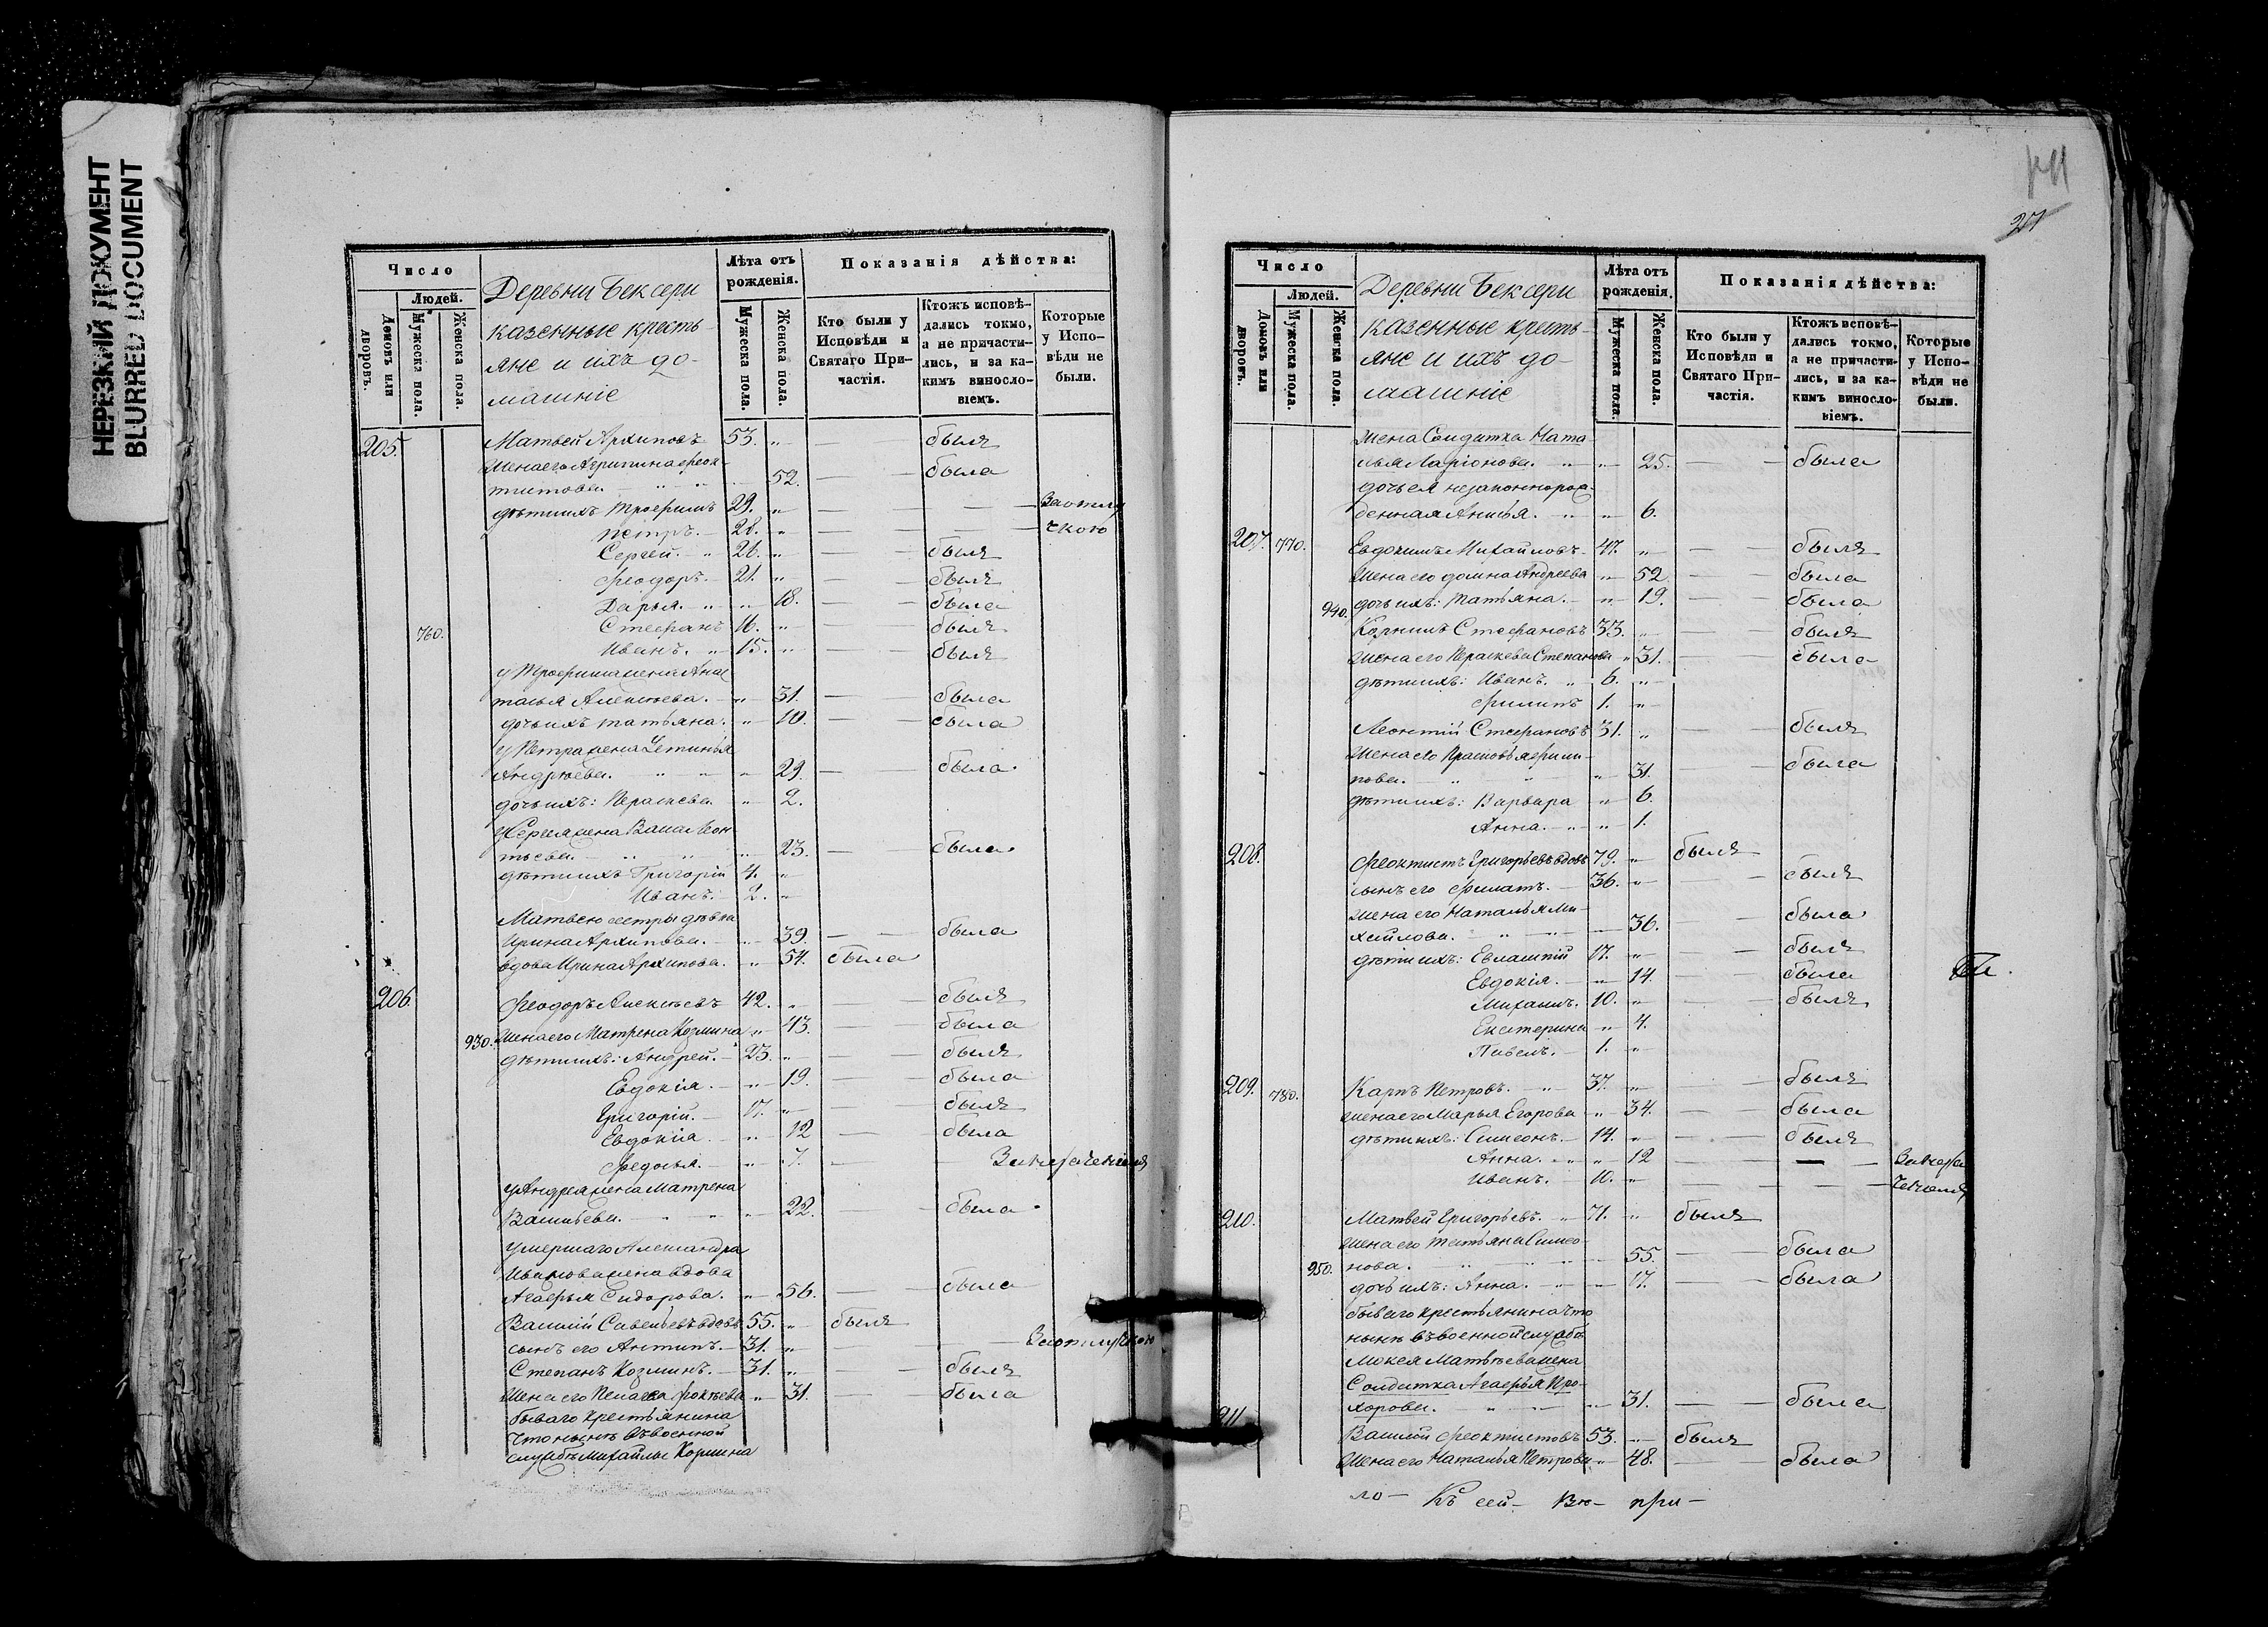 НЕРЕЗКИЙ ДОКУМЕНТ
BLURRED DOCUMENT
Число
Людей.
Домовъ или дворовъ.
Мужеска пола.
Женска пола.
Деревни Бексери
казенные кресть-
яне и ихъ до-
машніе
Лѣта отъ рожденія.
Мужеска пола.
Женска пола.
Показанія дѣйства:
Кто были у Исповѣди и Святаго При-частія.
Ктожъ исповѣ-дались токмо, а не причасти-лись, и за ка-кимъ винosло-віемъ.
Которые у Испо-вѣди не были.
205. Матвей Архиповъ 53. „ — былъ
жена его Агрипина Феок-
тистова „ 52. — была
дѣти ихъ Трофимъ 29. „ — — За отлу
Петръ. 28. „ — — чкою
Сергей. „ 26. „ — былъ
Феодоръ. 21. „ — былъ
Дарья. „ „ 18. — была
760. Стефанъ 16. „ — былъ
Иванъ. „ 15. „ — былъ
у Трофима жена Анас
тасья Алексѣева. „ 31. — была
дочь ихъ Татьяна. „ 10. — была
у Петра жена Устинья
Андреева. „ „ „ 29. — была
дочь ихъ: Параскева. „ 2.
у Сергея жена Васса Леон
тьева. „ „ „ 23. — была
дѣти ихъ Григорій 4. „
Иванъ. 2. „
Матвею сестры дѣвка
Ирина Архипова. „ 39. — была
вдова Ирина Архипова. „ 54. была
206. Феодоръ Алексѣевъ 42. „ — былъ
930. жена его Матрена Козмина „ 43. — была
дѣти ихъ: Андрей. 23. „ — былъ
Евдокія. „ 19. — была
Григорій. 17. „ — былъ
Евдокія. „ 12 — была
Федосья. „ 7. —
у Андрея жена Матрена
Васильева. „ „ 22. — была
умершаго Александра
Иванова жена вдова
Агафья Сидорова. „ 56. — была
Василій Савельевъ вдовъ 55. „ былъ
сынъ его Антипъ. 31. „ — — За отлучкою
Степанъ Козминъ. 31. „ — былъ
жена его Пелагея Фокѣева „ 31. — была
бываго крестьянина
что нынѣ въ военной
службѣ Михайлы Козмина
Число
Людей.
Домовъ или дворовъ.
Мужеска пола.
Женска пола.
Деревни Бексери
казенные кресть-
яне и ихъ до-
машніе
Лѣта отъ рожденія.
Мужеска пола.
Женска пола.
Показанія дѣйства:
Кто были у Исповѣди и Святаго При-частія.
Ктожъ исповѣ-дались токмо, а не причасти-лись, и за ка-кимъ винosло-віемъ.
Которые у Испо-вѣди не были.
жена Солдатка Ната
лья Ларіонова. „ „ 25. — была
дочь ея незаконнорож-
денная Анисья. „ „ 6.
207. 770. Евдокимъ Михайловъ 47. „ — былъ
жена его Домна Андреева „ 52 — была
940. дочь ихъ: Татьяна. „ 19. — была
Корнилъ Стефановъ 33. „ — былъ
жена его Параскева Степанова „ 31. — была
дѣти ихъ: Иванъ. „ 6. „
Филипъ 1. „
Леонтій Стефановъ 31. „ — былъ
жена его Прасковья Филип-
пова. „ „ „ 31. — была
дѣти ихъ: Варвара „ 6.
Анна. „ „ 1.
208. Феоктистъ Григорьевъ вдовъ 79. „ былъ
сынъ его Филатъ. 36. „ — былъ
жена его Наталья Ми-
хайлова. „ „ 36. — была
дѣти ихъ: Евлампій 17. „ — былъ
Евдокія. „ 14. — была
Михаилъ. 10. „ — былъ
Екатерина „ 4.
Павелъ. 1. „
209. 780. Карпъ Петровъ. „ 37. „ — былъ
жена его Марья Егорова „ 34. — была
дѣти ихъ: Симеонъ. 14. „ — былъ
Анна. „ „ 12 — —
Иванъ. 10. „ — —
210. Матвей Григорьевъ. „ 71. „ былъ
жена его Татьяна Симео
950. нова. „ „ „ 55. — была
дочь ихъ: Анна. „ „ 17. — была
бываго крестьянина что
нынѣ въ военной службѣ
Мокея Матвѣева жена
Солдатка Агафья Про-
хорова. „ „ 31. — была
211 Василій Феоктистовъ 53. „ былъ
жена его Наталья Петрова „ 48. — была
ло— Къ сей— при—